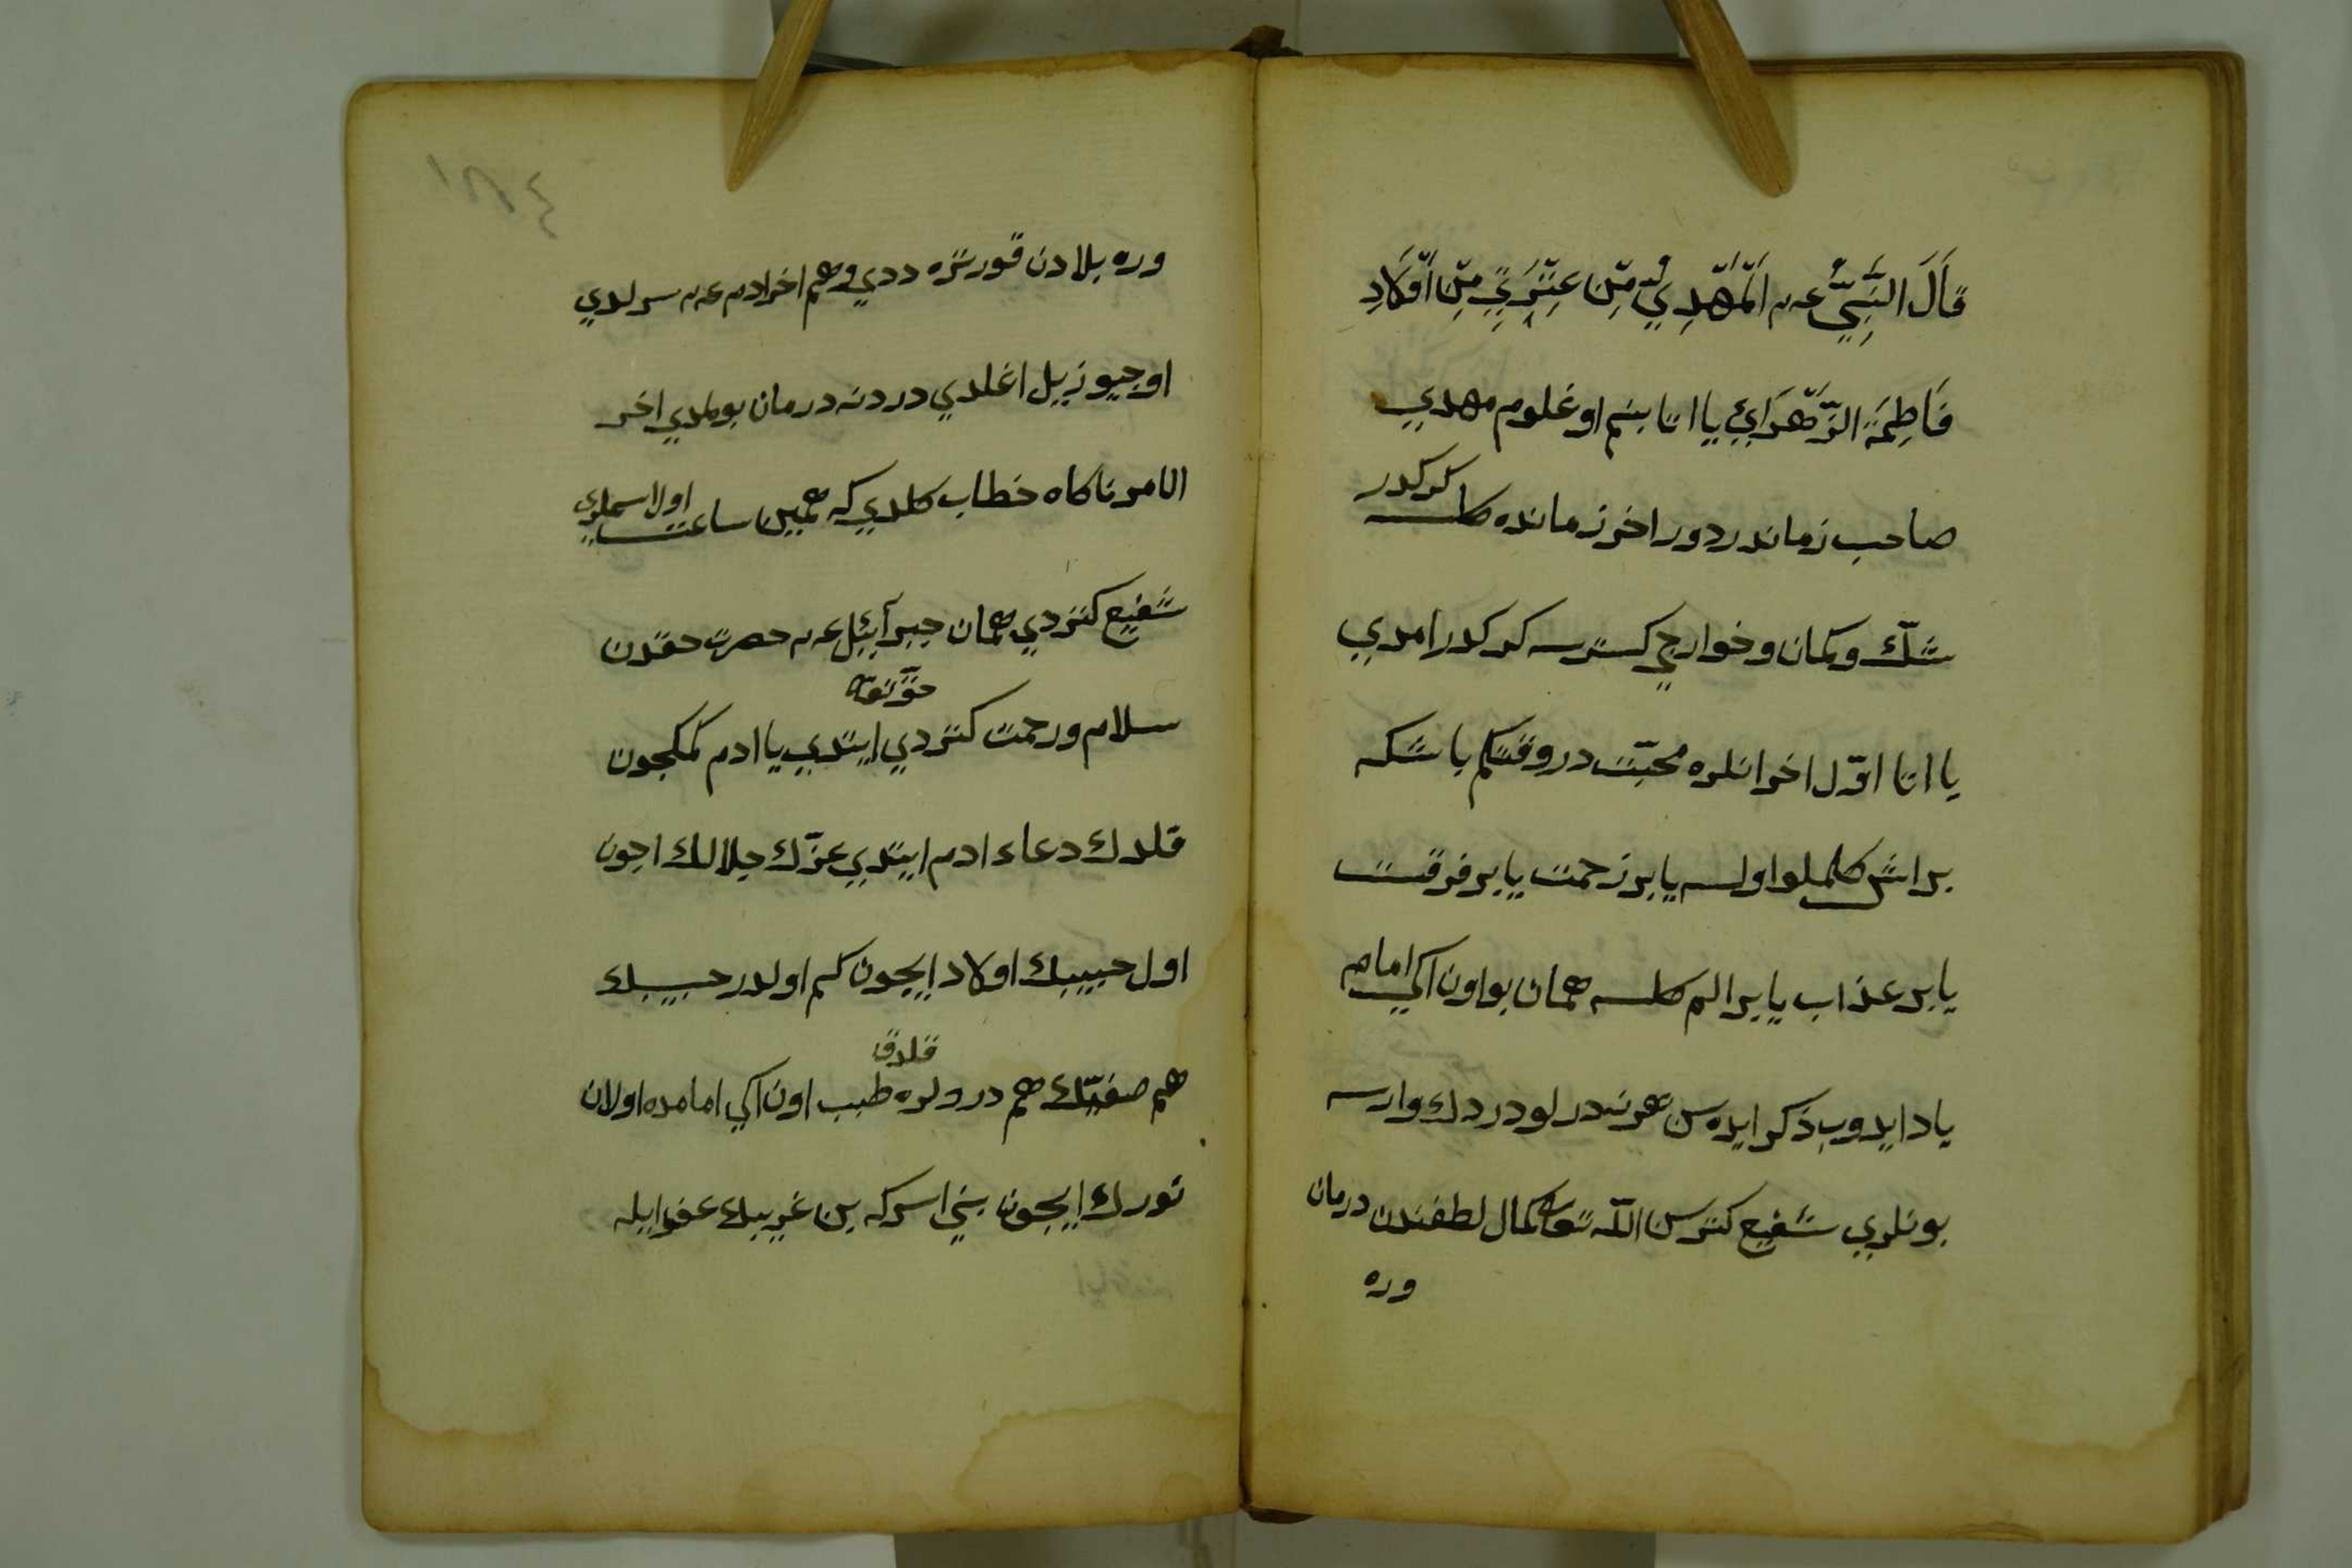 قَالَ النَّبِيُّ عم اَلْمَهْدِيُّ مِنْ عِتْرَتِي مِنْ اَوْلَادِ
فَاطِمَةَ الزَّهْرَايِ يا انا بنم اوغلوم مهدي
صاحب زماندر دور اخر زمانده كلسه كركدر
شك وكمان وخوارجي كسترسه كركدر امدي
يا انا اوّل اخر انلره محبّت در وقتكم باشكه
بر اش كلملو اولسه يا بر زحمت يا بر فرقت
يا بر عذاب يا بر الم كلسه همان بو اون اكي امام
ياد ايدوب ذكر ايده سن هر نه درلو دردك وارسه
بونلري شفيع كتورسن الله تعالى كمال لطفندن درمان
وره
١٨٤
وره بلادن قورتره ددي وهم اخر ادم عم سرلدي
اوجيوز ييل اغلدي دردنه درمان بولمدي اخر
الامر ناكاه خطاب كلدي كه همين ساعت اول اسملري
شفيع كتردي همان جبرآئيل عم حضرت حقدن
سلام ورحمت كتردي ايتدي يا ادم كمكچون
حق تعالى
قلدك دعاء ادم ايتدي عزّك جلالك اچون
اول حبيبك اولاد ايچون كم اولدر حبيبك
هم صفيّك هم دردلره طبيب اون اكي امامده اولان
قلدق
نورك ايچون بني اسركه بن غريبك عفو ايله